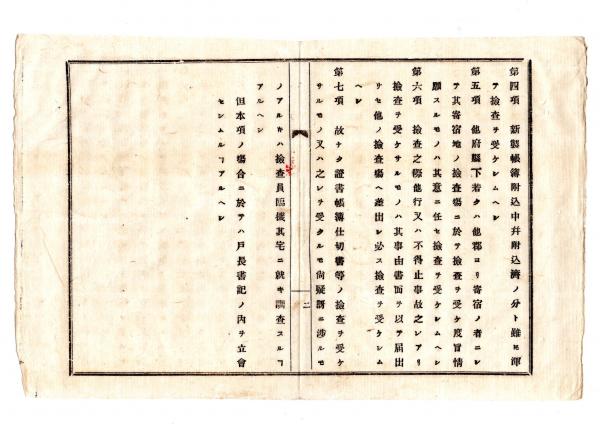 第四項 新製帳簿附込中幷附込濟ノ分ト雖モ渾
テ檢查ヲ受ケシムヘシ
第五項 他府縣下若クハ他郡ヨリ寄宿ノ者ニシ
テ其寄宿地ノ檢查場ニ於テ檢查ヲ受ケ度旨情
願スルモノハ其意ニ任セ檢查ヲ受ケシムヘシ
第六項 檢查之際他行又ハ不得止事故之レアリ
檢查ヲ受ケサルモノハ其事由書面ヲ以テ届出
サセ他ノ檢查場ヘ差出シ必ス檢查ヲ受ケシム
ヘシ
第七項 故ナク證書帳簿仕切書等ノ檢查ヲ受ケ
サルモノ又ハ之レヲ受クルモ尙疑謂ニ涉ルモ
二
ノアルキハ檢查員臨機其宅ニ就キ調查スルヿ
アルヘシ
但本項ノ場合ニ於テハ戶長書記ノ內ヲ立會
セシムルヿアルヘシ